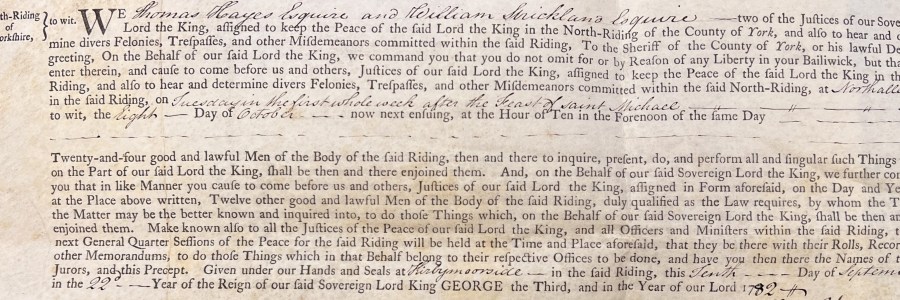 th-Riding
of
orkshire,
to wit.
WE Thomas Hayes Esquire and William Strickland Esquire — two of the Justices of our Sove
Lord the King, assigned to keep the Peace of the said Lord the King in the North-Riding of the County of York, and also to hear and d
mine divers Felonies, Trespasses, and other Misdemeanors committed within the said Riding, To the Sheriff of the County of York, or his lawful De
greeting, On the Behalf of our said Lord the King, we command you that you do not omit for or by Reason of any Liberty in your Bailiwick, but tha
enter therein, and cause to come before us and others, Justices of our said Lord the King, assigned to keep the Peace of the said Lord the King in th
Riding, and also to hear and determine divers Felonies, Trespasses, and other Misdemeanors committed within the said North-Riding, at Northalle
in the said Riding, on Tuesday in the first whole week after the Feast of Saint Michael — " — "
to wit, the Eight — Day of October — now next ensuing, at the Hour of Ten in the Forenoon of the same Day
Twenty-and-four good and lawful Men of the Body of the said Riding, then and there to inquire, present, do, and perform all and singular such Things
on the Part of our said Lord the King, shall be then and there enjoined them. And, on the Behalf of our said Sovereign Lord the King, we further com
you that in like Manner you cause to come before us and others, Justices of our said Lord the King, assigned in Form aforesaid, on the Day and Ye
at the Place above written, Twelve other good and lawful Men of the Body of the said Riding, duly qualified as the Law requires, by whom the T
the Matter may be the better known and inquired into, to do those Things which, on the Behalf of our said Sovereign Lord the King, shall be then an
enjoined them. Make known also to all the Justices of the Peace of our said Lord the King, and all Officers and Ministers within the said Riding, t
next General Quarter Sessions of the Peace for the said Riding will be held at the Time and Place aforesaid, that they be there with their Rolls, Recor
other Memorandums, to do those Things which in that Behalf belong to their respective Offices to be done, and have you then there the Names of t
Jurors, and this Precept. Given under our Hands and Seals at Kirbymoorside — in the said Riding, this Tenth — Day of Septem
in the 22d — Year of the Reign of our said Sovereign Lord King GEORGE the Third, and in the Year of our Lord 1782